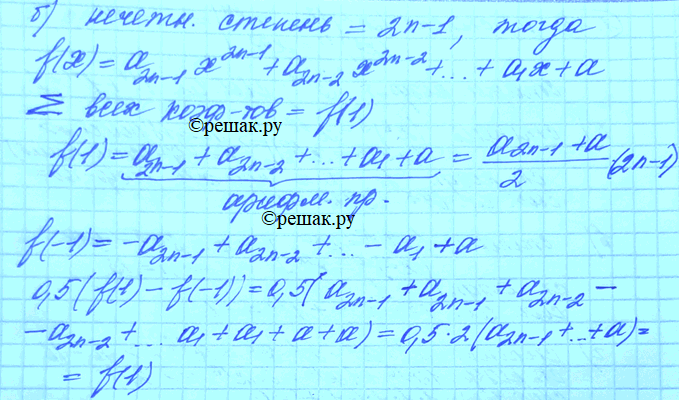 б) нечетн. степень = 2n-1, тогда
f(x) = a_{2n-1} x^{2n-1} + a_{2n-2} x^{2n-2} + ... + a_1x + a
Σ всех коэф-тов = f(1)
©решак.ру
f(1) = a_{2n-1} + a_{2n-2} + ... + a_1 + a = \frac{a_{2n-1} + a}{2} (2n-1)
арифм. пр.
©решак.ру
f(-1) = -a_{2n-1} + a_{2n-2} + ... - a_1 + a
0,5(f(1) - f(-1)) = 0,5(a_{2n-1} + a_{2n-1} + a_{2n-2} -
- a_{2n-2} + ... a_1 + a_1 + a + a) = 0,5·2(a_{2n-1} + ... + a) =
= f(1)